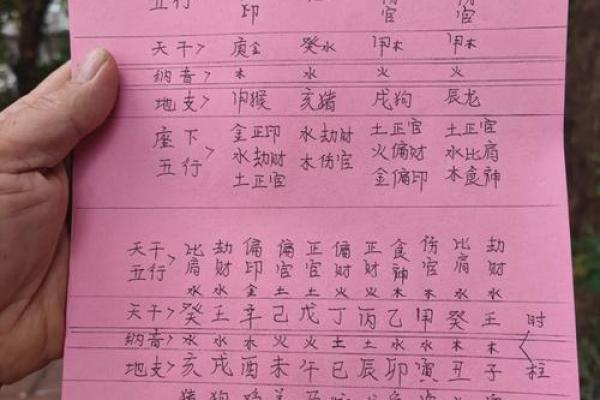 五行 印 伤官 伤官
天干> 庚金 癸水 甲木 甲木
纳音> 木 水 火 火
地支> 申猴 亥猪 戌狗 辰龙
座下 金正印 水劫财 土正官 土正官
五行> 水劫财 木伤官 火偏财 水比肩
土正官 金偏印 木食神
天干 比 劫 偏 偏 正 偏 正 食 伤 比 劫
五行> 肩 财 印 官 官 财 财 神 官 肩 财
水 水 金 土 土 火 火 木 木 水 水
天干> 癸 壬 辛 己 戊 丁 丙 乙 甲 癸 壬 时
纳音> 水 水 木 火 火 土 土 水 水 木 木
地支> 亥 戌 酉 未 午 巳 辰 卯 寅 丑 子 柱
猪 狗 鸡 羊 马